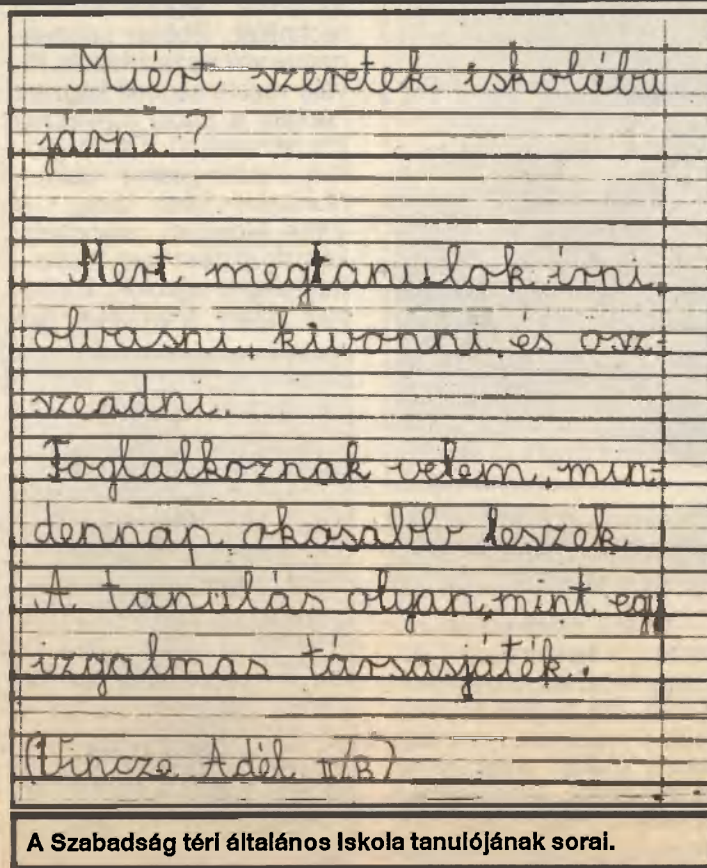 Miért szeretek iskolába
járni?
Mert megtanulok írni,
olvasni, kivonni, és osz-
szeadni.
Foglalkoznak velem, min-
dennap okosabb leszek
A tanulás olyan, mint egy
izgalmas társasjáték.
(Vincze Adél II/B)
A Szabadság téri általános Iskola tanulójának sorai.